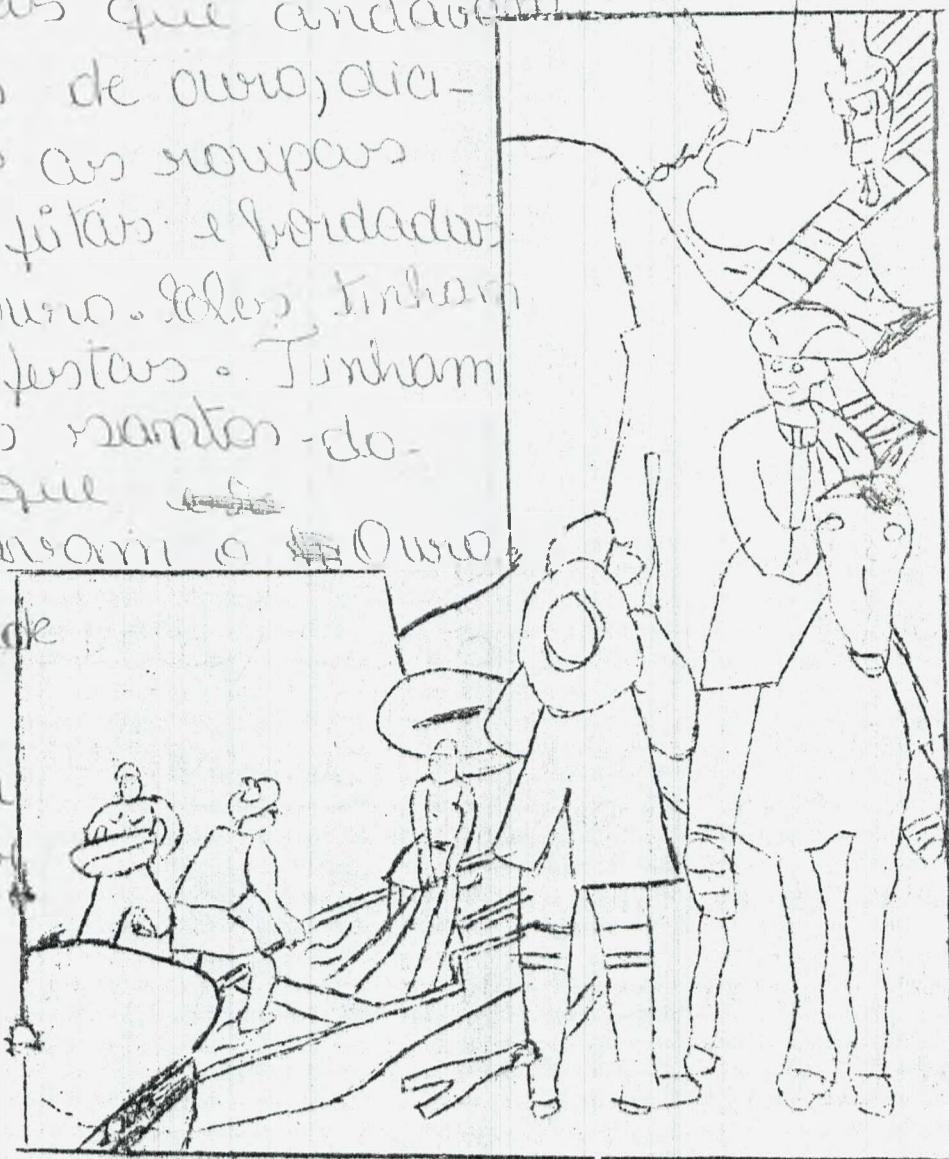 que andavam
de ouro, dia-
as roupas
fitas e bordadas
ouro. Eles tinham
festas. Tinham
santos-do-
que
o Ouro
de